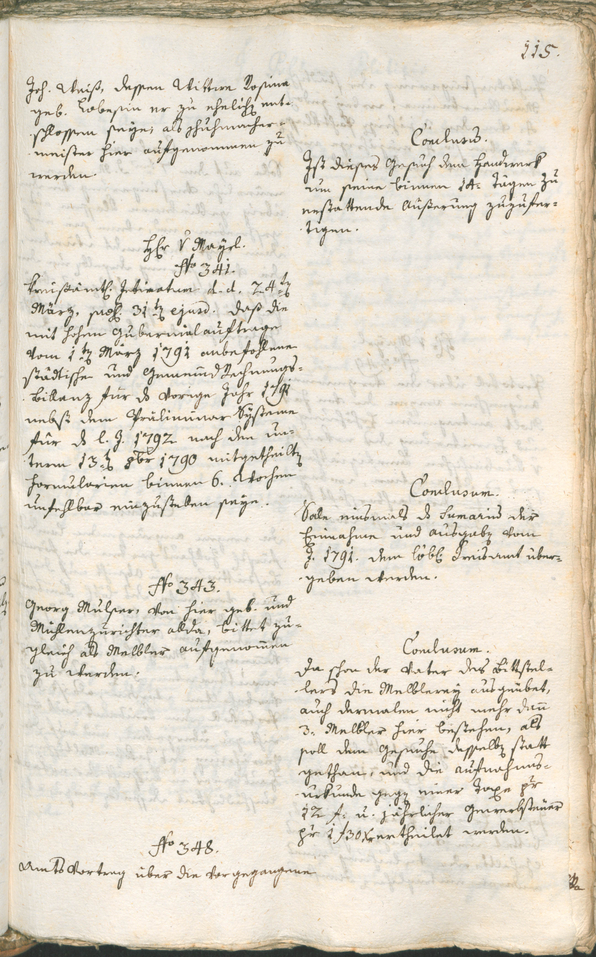 115.
Joh. Weiß, dessen Wittwe Rosina
geb. er zu ehelichen ent-
schlossen seye, als Schuhmacher-
meister hier aufgenommen zu
werden.
Conclusum.
Ist dieses Gesuch dem Handwerk
um seine binnen 14. Tägen zu
erstattende Äußerung zuzufer-
tigen.
H: v Mayrl.
No 341.
Kreisämtl. Intimatum d. d. 24ten
März, praes. 31ten ejusd. daß die
mit hohem Gubernialauftrage
vom 1ten März 1791 anbefohlene
städtische und Gemeind Rechnungs-
Billanz für das vorige Jahr 1791
nebst dem Präliminar Systeme
für d. l. J. 1792 nach den un-
term 13ten 8br 1790 mitgetheilten
Formularien binnen 6. Wochen
unfehlbar einzustellen seye.
Conclusum.
Solle einsmals der Sumarius der
Einnahme und Ausgaben vom
J. 1791. dem löbl. Kreisamt über-
geben werden.
No 343.
Georg Mulser, von hier geb. und
Mühlenzurichter alda, bittet zu-
gleich als Melbler aufgenommen
zu werden.
Conclusum.
Da schon der Vater des Bittstel-
lers die Melblerey ausgeübet,
auch dermalen nicht mehr dann
3. Melbler hier bestehen, als
soll dem Gesuche desselben statt
gethan, und die Aufnahms-
urkunde gegen einer Taxe pr
12 f. u. jährlicher Gewerbsteuer
pr 1 f 30 x ertheilet werden.
No 348.
Amts Vortrag über die vorgegangene